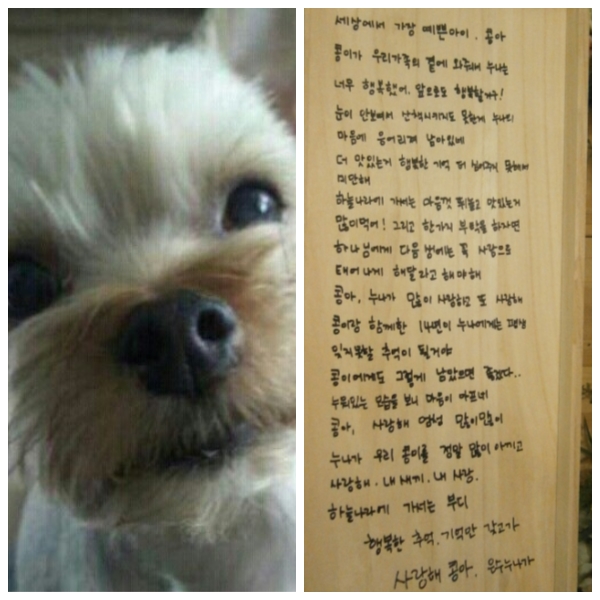 세상에서 가장 예쁜아이, 콩아
콩이가 우리가족의 곁에 와줘서 누나는
너무 행복했어. 앞으로도 행복할거구!
눈이 안보여서 산책시켜지도 못한게 누나의
마음에 응어리져 남아있네
더 맛있는거 행복한 기억 더 심어주지 못해서
미안해
하늘나라에 가서는 마음껏 뛰놀고 맛있는거
많이먹어! 그리고 한가지 부탁을 하자면
하나님에게 다음 생에는 꼭 사람으로
태어나게 해달라고 해야해
콩아, 누나가 많이 사랑하고 또 사랑해
콩이랑 함께한 14년이 누나에게는 평생
잊지못할 추억이 될거야
콩이에게도 그렇게 남았으면 좋겠다..
누워있는 모습을 보니 마음이 아프네
콩아, 사랑해 영원 많이많이
누나가 우리 콩이를 정말 많이 아끼고
사랑해. 내새끼. 내 사랑.
하늘나라에 가서는 부디
행복한 추억, 기억만 갖고가
사랑해 콩아. 은수누나가